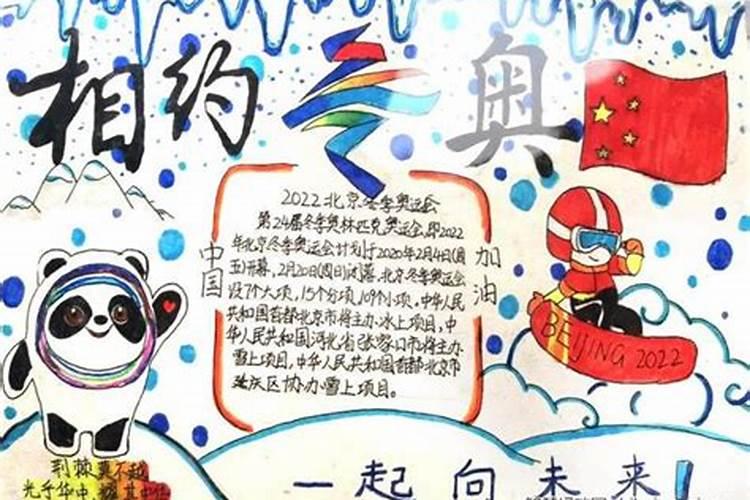 相约冬奥
2022北京冬季奥运会
第24届冬季奥林匹克奥运会,即2022
年北京冬季奥运会计划于2020年2月4日(周
五)开幕,2月20日(周日)闭幕。北京冬季奥运会
设7个大项,15个分项,109个小项。中华人民
共和国首都北京市将主办冰上项目,中
华人民共和国河北省张家口市将主办
雪上项目,中华人民共和国首都北京市
延庆区协办雪上项目。
中国
加油
BEIJING 2022
荆棘莫不越
光乎华中
一起向未来!